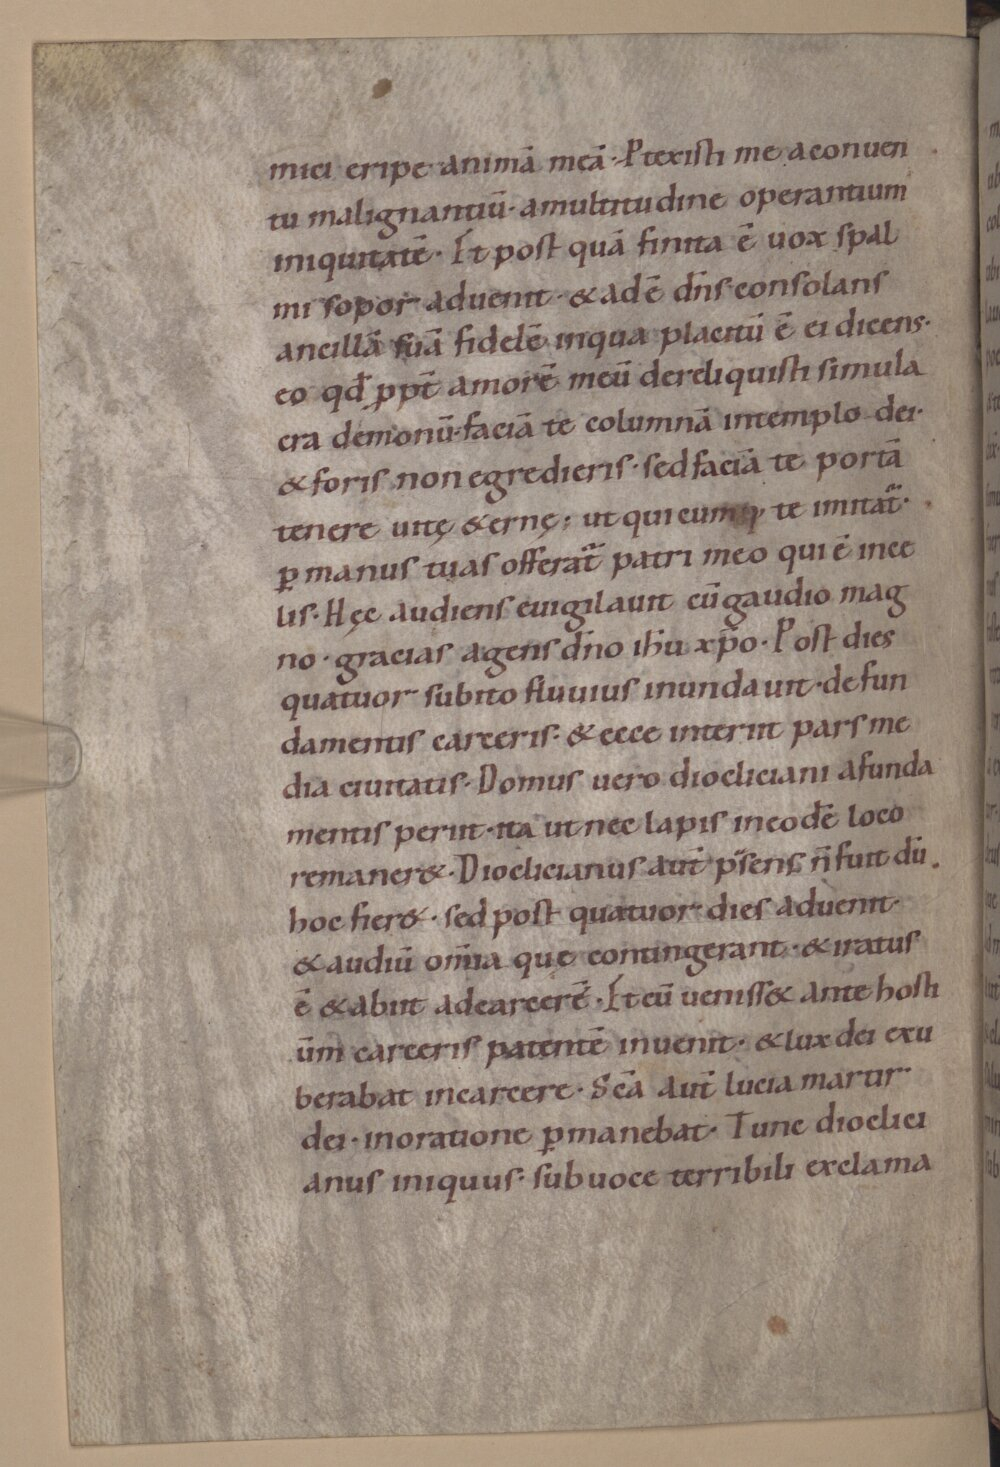 mici eripe animā meā · Ptexisti me aconuen
tu malignantiū · amultitudine operantium
iniquitatē · Et post quā finita ē uox spal
mi sopor aduenit · & adē dn̄s consolans
ancillā suā fidelē inqua placitū ē ei dicens ·
eo qđ ꝓpt̄ amorē meū dereliquisti simula
cra demonū · faciā te columnā intemplo dei ·
& foris non egredieris · sed faciā te portā
tenere uitę &ernę ; ut quicumq; te imitat̄ ·
ꝑ manus tuas offerat̄ patri meo qui ē ince
lis · Hęc audiens euigilauit cū gaudio mag
no · gracias agens dn̄o ihū xp̄o · Post dies
quatuor subito fluuius inundauit · defun
damentis carceris · & ecce interiit pars me
dia ciuitatis · Domus uero diocliciani afunda
mentis periit · ita ut nec lapis ineodē loco
remaner& · Dioclicianus aut̄ p̄sens n̄ fuit dū
hoc fier& · sed post quatuor dies aduenit ·
& audiū om̄ia quę contingerant · & iratus
ē & abiit adcarcerē · Et cū ueniss& ante hosti
ūm carceris patentē inuenit · & lux dei exu
berabat incarcere · Scā aut̄ lucia martir
dei · inoratione ꝑmanebat · Tunc dioclici
anus iniquus · sub uoce terribili exclama